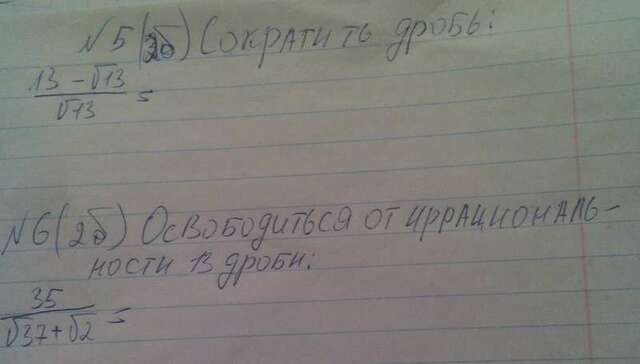 N5 (2б) Сократить дробь:
13 - √13
√13 =
N6 (2б) Освободиться от иррациональ-
ности в дроби:
35
√37+√2 =